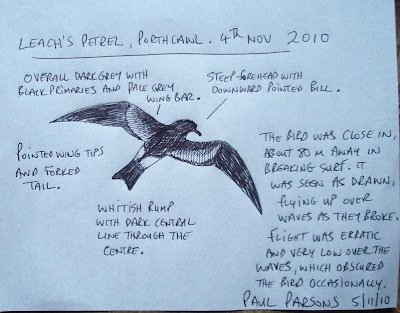 LEACH'S PETREL, PORTHCAWL. 4TH NOV 2010
OVERALL DARK GREY WITH
BLACK PRIMARIES AND PALE GREY
WING BAR.
STEEP FOREHEAD WITH
DOWNWARD POINTED BILL.
POINTED WING TIPS
AND FORKED
TAIL.
WHITISH RUMP
WITH DARK CENTRAL
LINE THROUGH THE
CENTRE.
THE BIRD WAS CLOSE IN,
ABOUT 80M AWAY IN
BREAKING SURF. IT
WAS SEEN AS DRAWN,
FLYING UP OVER
WAVES AS THEY BROKE.
FLIGHT WAS ERRATIC
AND VERY LOW OVER THE
WAVES, WHICH OBSCURED
THE BIRD OCCASIONALLY.
PAUL PARSONS 5/11/10